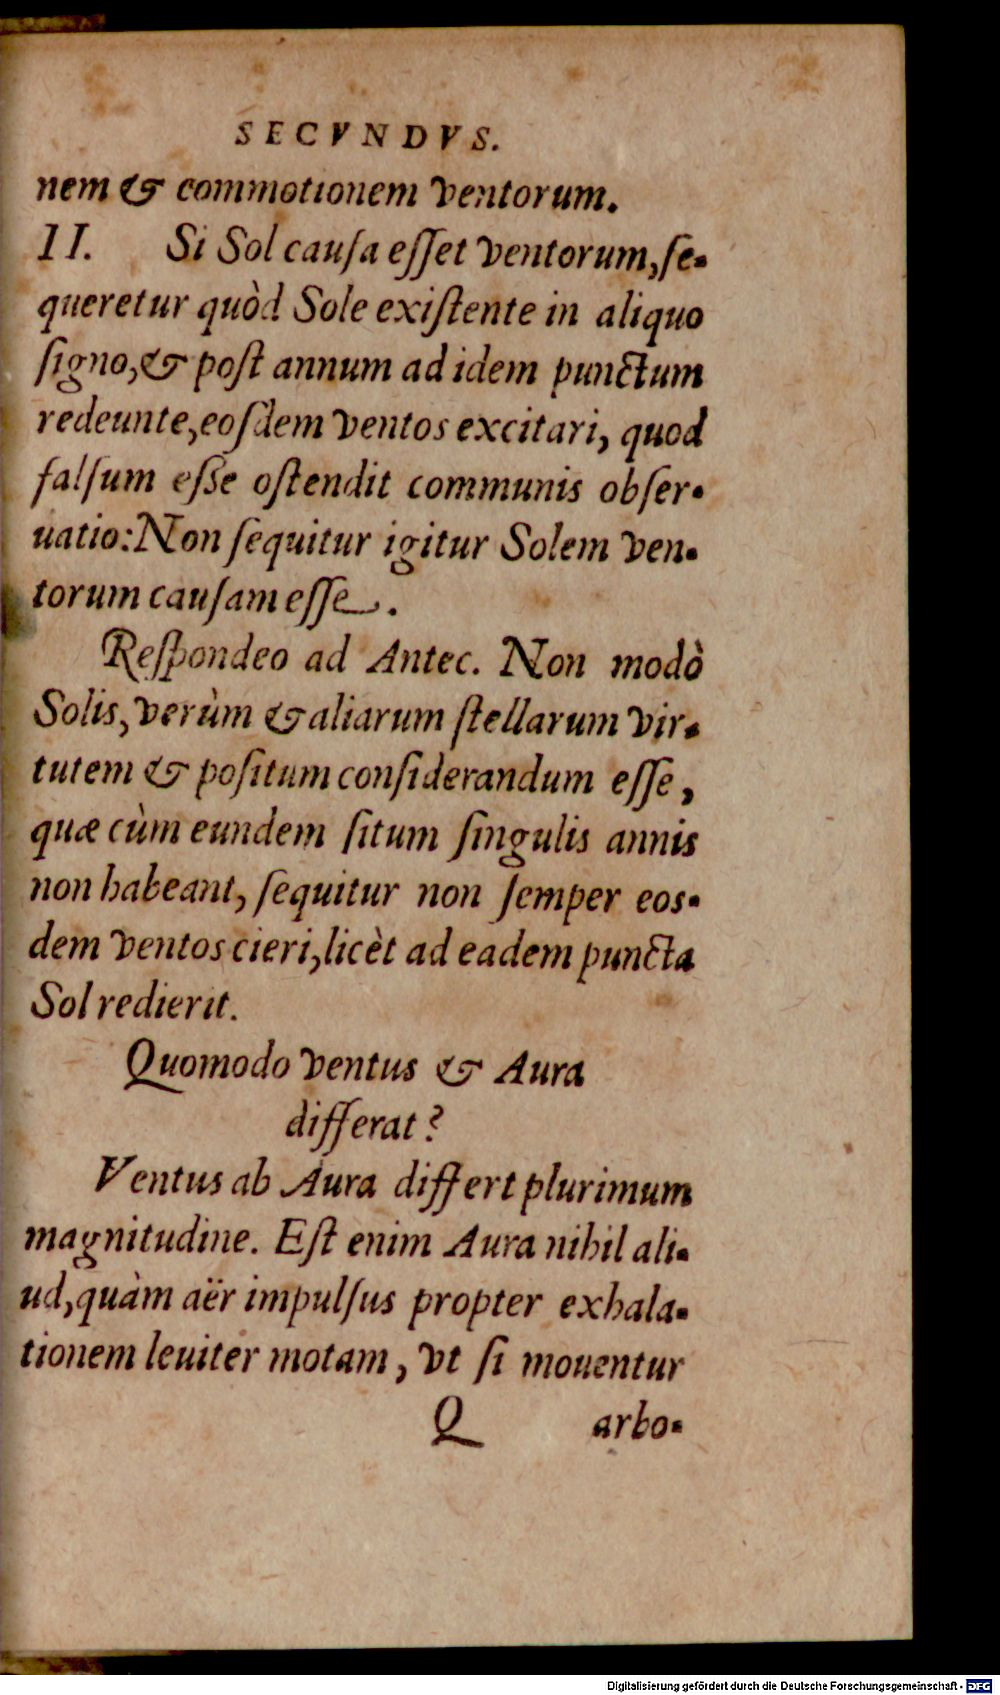 SECVNDVS.
nem & commotionem ventorum.
II. Si Sol cauſa eſſet ventorum, ſe-
queretur quòd Sole exiſtente in aliquo
ſigno, & poſt annum ad idem punctum
redeunte, eoſdem ventos excitari, quod
falſum eſſe oſtendit communis obſer-
uatio: Non ſequitur igitur Solem ven-
torum cauſam eſſe.
Reſpondeo ad Antec. Non modò
Solis, verùm & aliarum ſtellarum vir-
tutem & poſitum conſiderandum eſſe,
quæ cùm eundem ſitum ſingulis annis
non habeant, ſequitur non ſemper eos-
dem ventos cieri, licèt ad eadem puncta
Sol redierit.
Quomodo ventus & Aura
differat?
Ventus ab Aura differt plurimum
magnitudine. Eſt enim Aura nihil ali-
ud, quàm aër impulſus propter exhala-
tionem leuiter motam, vt ſi mouentur
Q arbo-
Digitalisierung gefördert durch die Deutsche Forschungsgemeinschaft - DFG